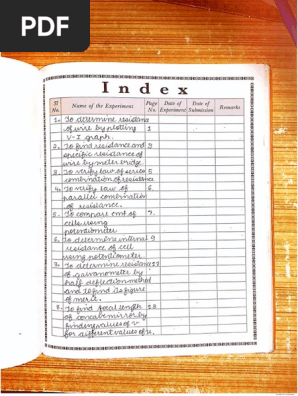 PDF
Index
Sl No. Name of the Experiment Page No. Date of Experiment Date of Submission Remarks
1. To determine resistance
of wire by plotting 1
V-I graph.
2. To find resistance and 3
specific resistance of
wire by meter bridge
3. To verify law of series 5
combination of resistance
4. To verify law of 6.
parallel combination
of resistance.
5. To compare emf of 7.
cells using
potentiometer
6. To determine internal 9
resistance of cell
using potentiometer.
7. To determine resistance
of galvanometer by
half deflection method
and to find its figure
of merit.
8. To find focal length
of concave mirror by
finding values of v
for different values of u.